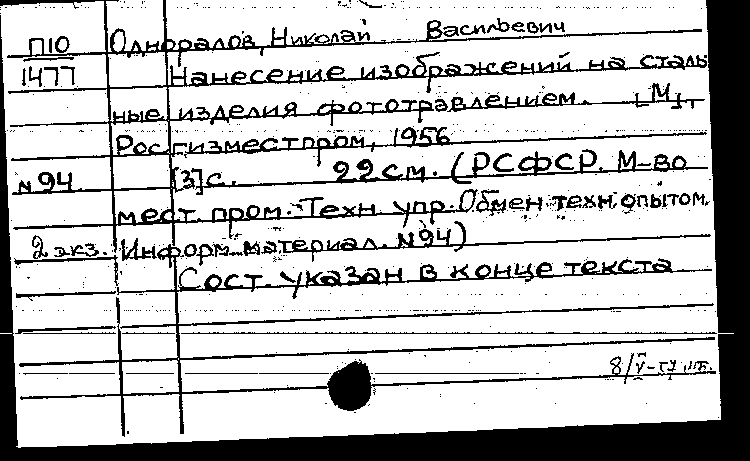 П10 Однаралов, Николай Васильевич
1477 Нанесение изображений на сталь
ные изделия фототравлением. [М],
Росгизместпром, 1956
N94 [3]с. 22см. (РСФСР. М-во
мест. пром. Техн. упр. Обмен техн. опытом.
2 экз. Информ. материал. N94)
Сост. указан в конце текста